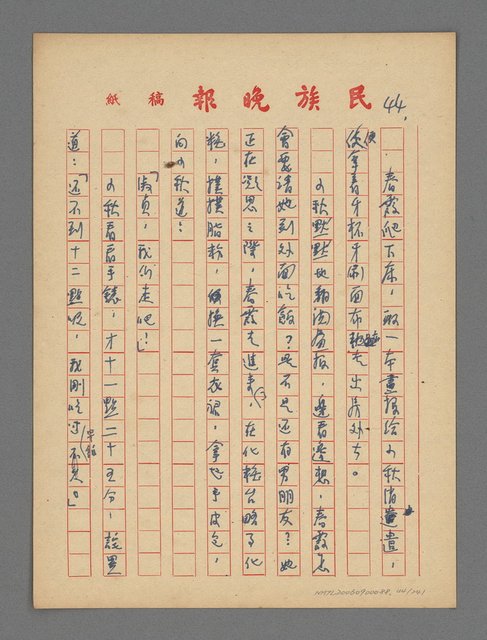 民族晚報 稿紙
44.
春霞爬下床，取一本畫報給小秋消遣，
便拿着牙杯牙刷面布跑走出房外去。
小秋點點地翻閱畫報，邊看邊想，春霞怎
會要請她到外面吃飯？是不是還有男朋友？她
正在凝思之際，春霞走進來，在化粧台略了化
粧，撲撲脂粉，換一套衣裙，拿起手皮包，
向小秋道：
「淑貞，我們走吧！」
小秋看看手錶，才十一點二十五分，說異
道：「還不到十二點呢，我剛吃過早餐不久。」
NMTL20060900088 44/241